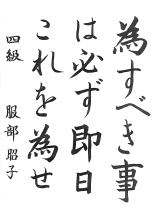 為すべき事
は必ず即日
これを為せ
四級 服部昭子